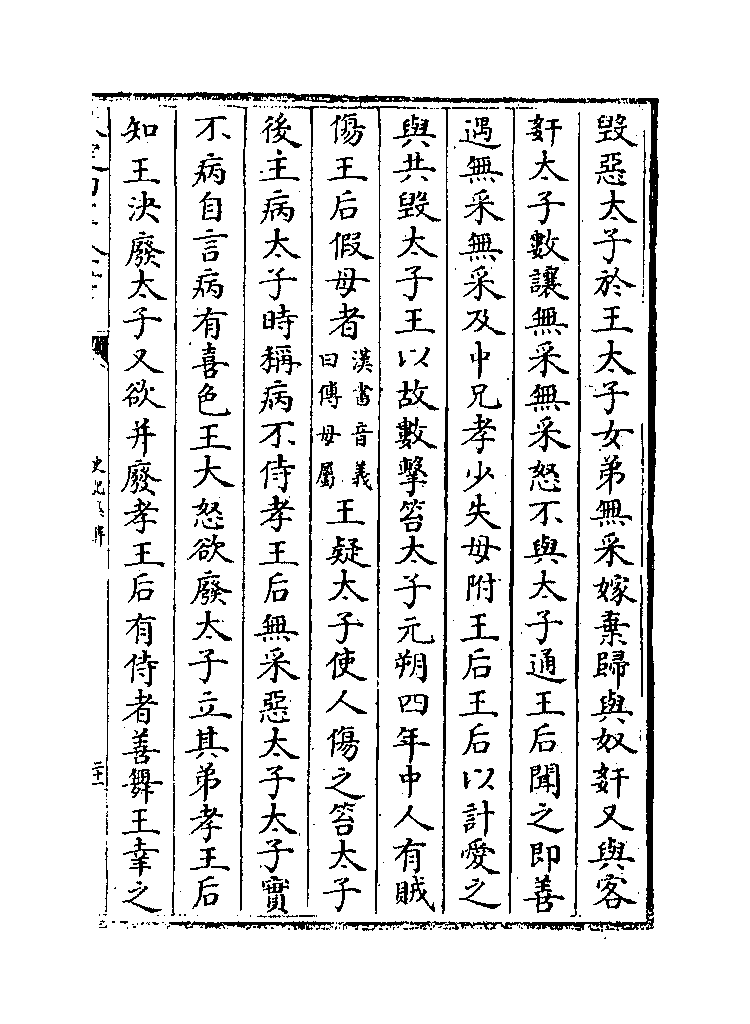 毀惡太子於王太子女弟無采嫁棄歸與奴姧又與客
姧太子數讓無采無采怒不與太子通王后聞之即善
遇無采無采及中兄孝少失母附王后王后以計愛之
與共毀太子王以故數擊笞太子元朔四年中人有賊
傷王后假母者漢書音義曰傅母屬王疑太子使人傷之笞太子
後主病太子時稱病不侍孝王后無采惡太子太子實
不病自言病有喜色王大怒欲廢太子立其弟孝王后
知王決廢太子又欲并廢孝王后有侍者善舞王幸之
史記集解
二十一